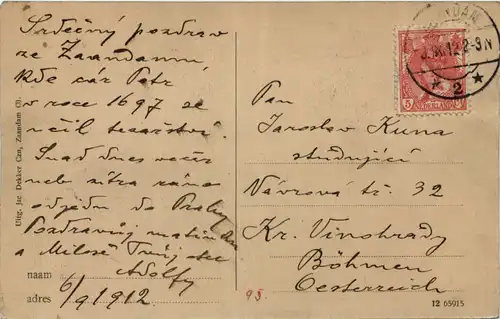 Srdečný pozdrav
ze Zaandamu,
kde cár Petr
v roce 1697 se
učil tesařství.
Snad dnes večer
neb zítra ráno
odjedu do Prahy
Pozdravuj matin
a Miloše Tvůj otec
Adolf
naam 6/9 1912
adres
Uitg. Jac. Dekker Czn, Zaandam
ZAANDAM
12 2-3N
* 2 *
5
NEDERLAND
Pan
Jaroslav Kuna
studující
Návrova tř. 32
Kr. Vinohrady
Böhmen
Oesterreich
95.
12 65915